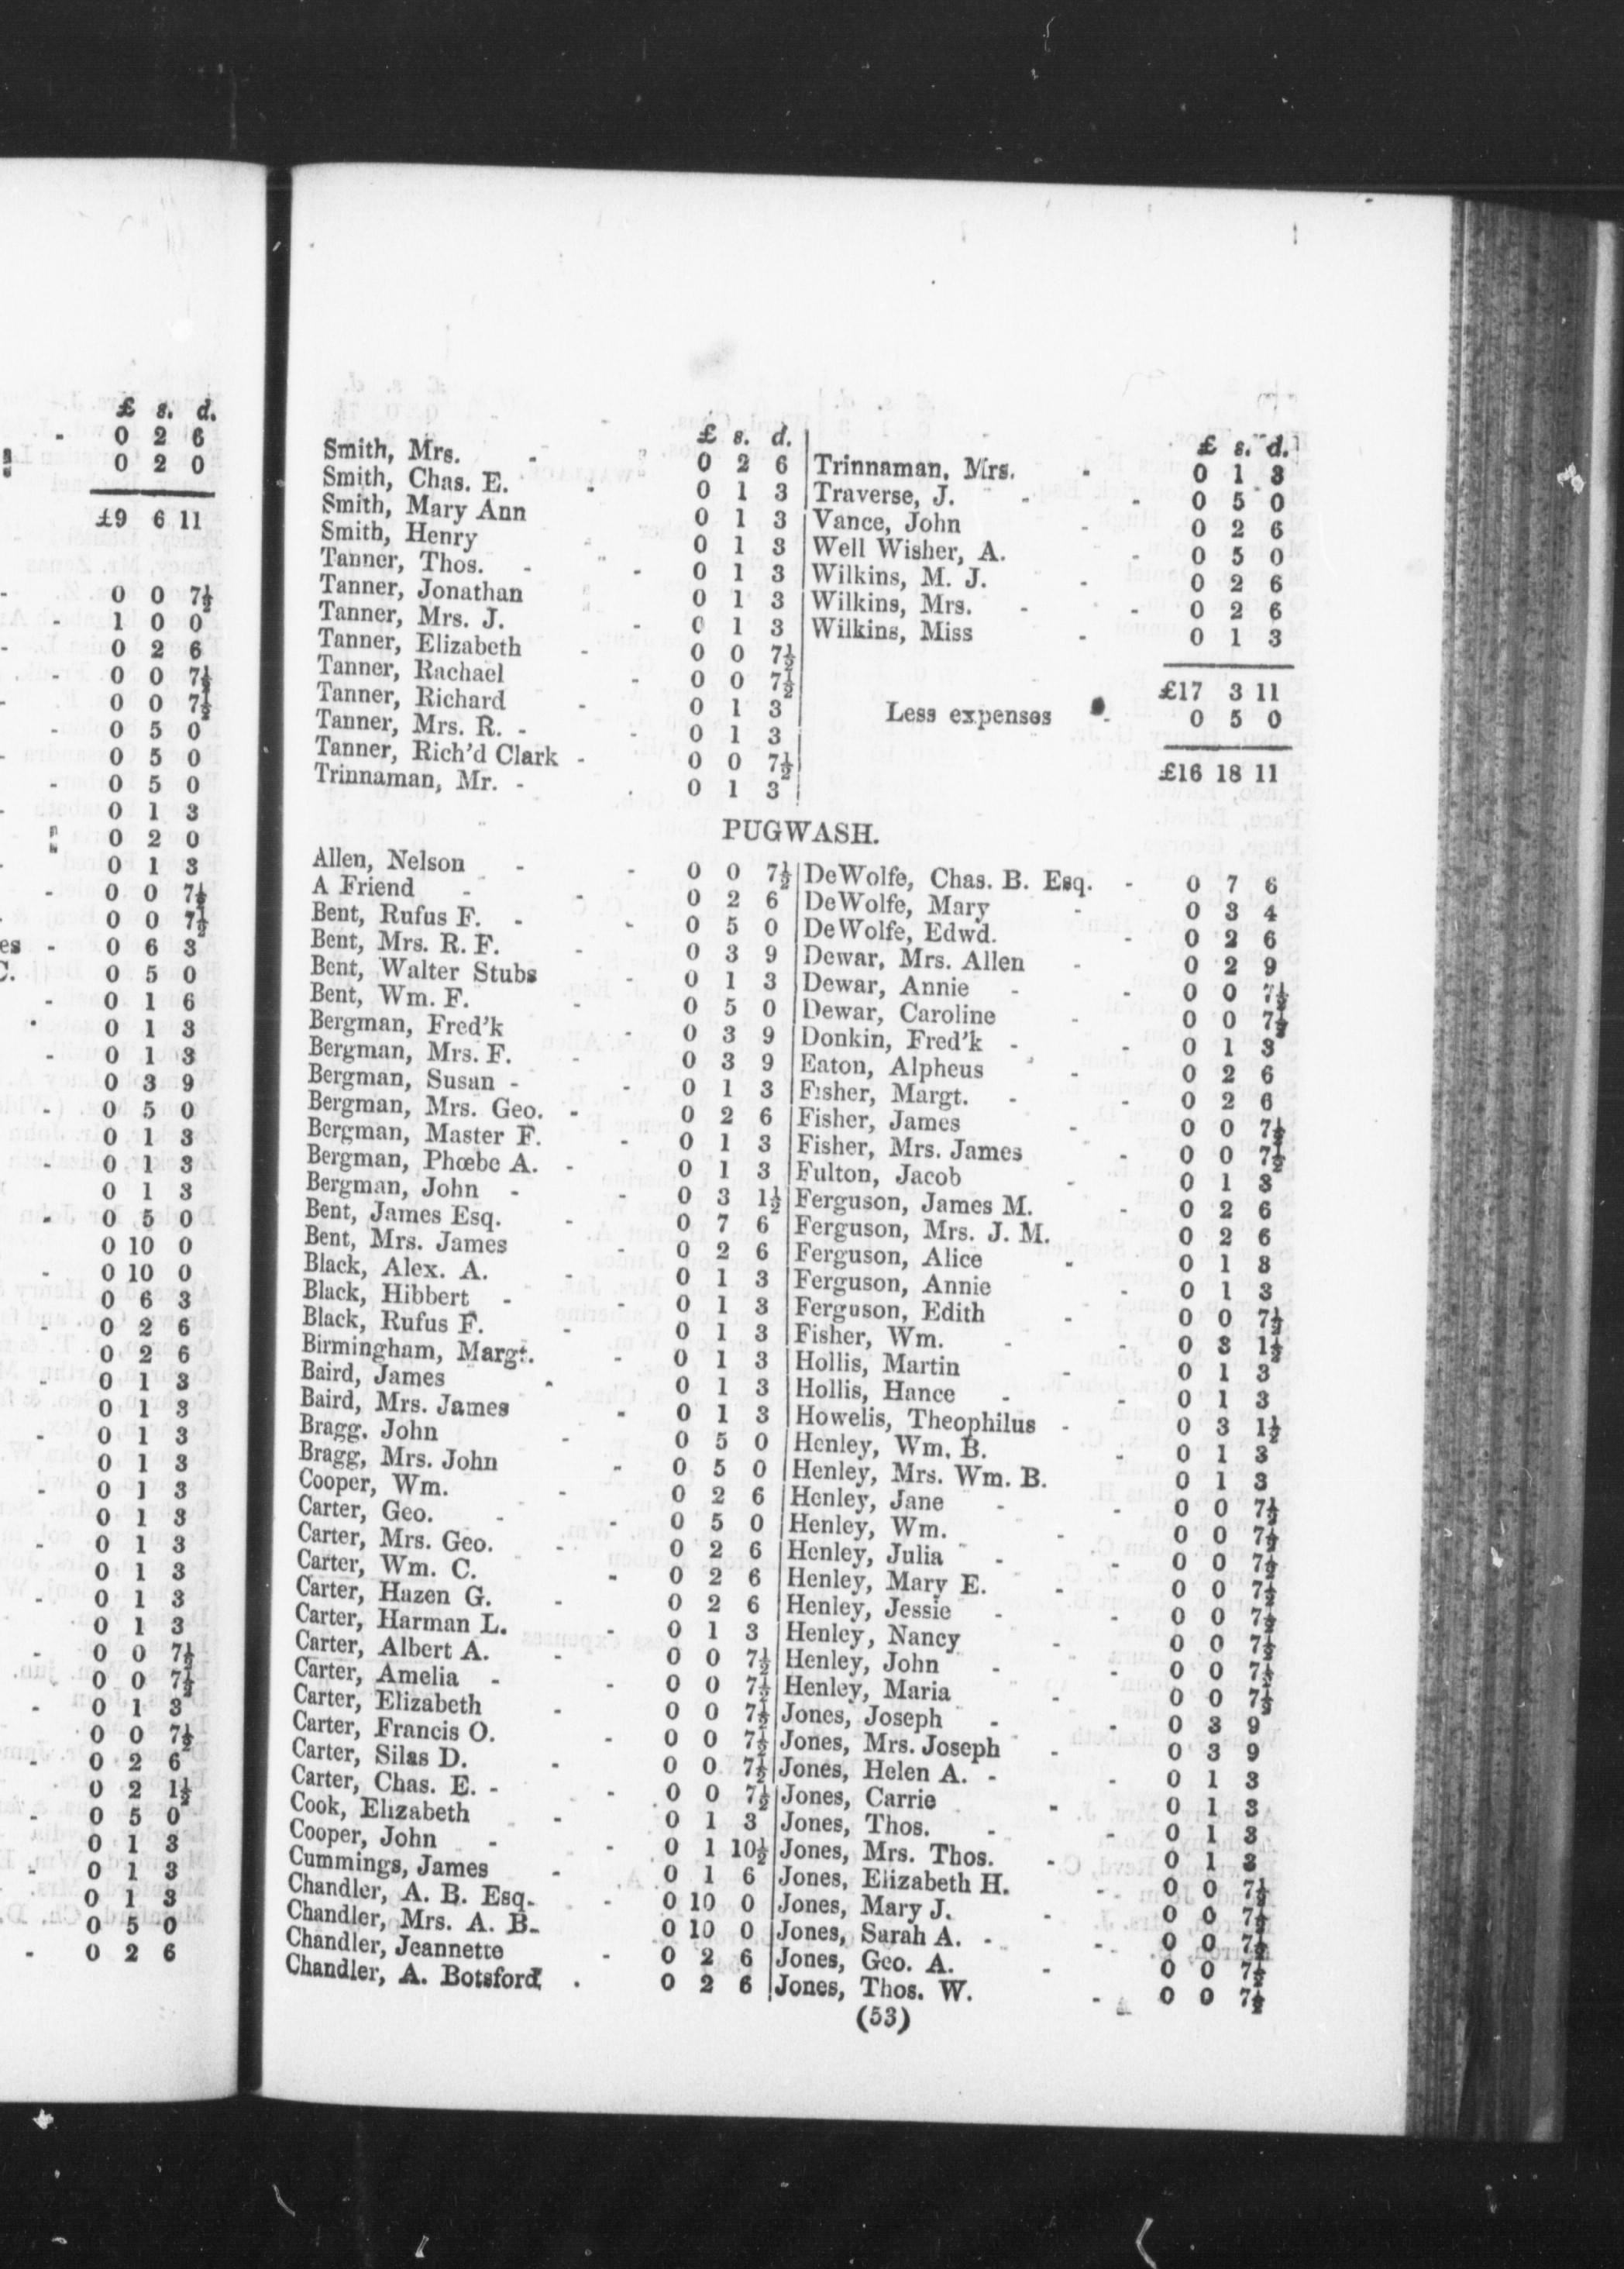 £ s. d.
- 0 2 6
0 2 0
£9 6 11
- 0 0 7½
1 0 0
- 0 2 6
- 0 0 7½
- 0 0 7½
- 0 5 0
- 0 5 0
- 0 5 0
- 0 1 3
0 2 0
- 0 1 3
- 0 0 7½
- 0 0 7½
es - 0 6 3
C. 0 5 0
- 0 1 6
0 1 3
- 0 1 3
0 3 9
- 0 5 0
0 1 3
- 0 1 3
0 1 3
- 0 5 0
0 10 0
- 0 10 0
0 6 3
- 0 2 6
0 2 6
- 0 1 3
0 1 3
- 0 1 3
0 1 3
- 0 1 3
0 1 3
- 0 1 3
0 1 3
- 0 1 3
0 1 3
- 0 0 7½
0 0 7½
- 0 1 3
0 0 7½
- 0 2 6
0 2 1½
- 0 5 0
0 1 3
- 0 1 3
0 1 3
0 5 0
- 0 2 6
£ s. d.
Smith, Mrs. - 0 2 6
Smith, Chas. E. - 0 1 3
Smith, Mary Ann 0 1 3
Smith, Henry 0 1 3
Tanner, Thos. - - 0 1 3
Tanner, Jonathan 0 1 3
Tanner, Mrs. J. - 0 1 3
Tanner, Elizabeth - 0 0 7½
Tanner, Rachael - 0 0 7½
Tanner, Richard - 0 1 3
Tanner, Mrs. R. - - 0 1 3
Tanner, Rich'd Clark - 0 0 7½
Trinnaman, Mr. - 0 1 3
£ s. d.
Trinnaman, Mrs. - 0 1 3
Traverse, J. - - 0 5 0
Vance, John - 0 2 6
Well Wisher, A. - 0 5 0
Wilkins, M. J. - 0 2 6
Wilkins, Mrs. - - 0 2 6
Wilkins, Miss - 0 1 3
£17 3 11
Less expenses - 0 5 0
£16 18 11
PUGWASH.
Allen, Nelson - - 0 0 7½
A Friend - - 0 2 6
Bent, Rufus F. - - 0 5 0
Bent, Mrs. R. F. - 0 3 9
Bent, Walter Stubs - 0 1 3
Bent, Wm. F. - 0 5 0
Bergman, Fred'k - 0 3 9
Bergman, Mrs. F. - 0 3 9
Bergman, Susan - - 0 1 3
Bergman, Mrs. Geo. - 0 2 6
Bergman, Master F. - 0 1 3
Bergman, Phœbe A. - 0 1 3
Bergman, John - - 0 3 1½
Bent, James Esq. - 0 7 6
Bent, Mrs. James - 0 2 6
Black, Alex. A. - 0 1 3
Black, Hibbert - - 0 1 3
Black, Rufus F. - 0 1 3
Birmingham, Margt. - 0 1 3
Baird, James - 0 1 3
Baird, Mrs. James - 0 1 3
Bragg, John - 0 5 0
Bragg, Mrs. John - 0 5 0
Cooper, Wm. - 0 2 6
Carter, Geo. - - 0 5 0
Carter, Mrs. Geo. - 0 2 6
Carter, Wm. C. - 0 2 6
Carter, Hazen G. - 0 2 6
Carter, Harman L. - 0 1 3
Carter, Albert A. - 0 0 7½
Carter, Amelia - - 0 0 7½
Carter, Elizabeth - 0 0 7½
Carter, Francis O. - 0 0 7½
Carter, Silas D. - 0 0 7½
Carter, Chas. E. - - 0 0 7½
Cook, Elizabeth - 0 1 3
Cooper, John - - 0 1 10½
Cummings, James - 0 1 6
Chandler, A. B. Esq. - 0 10 0
Chandler, Mrs. A. B. 0 10 0
Chandler, Jeannette - 0 2 6
Chandler, A. Botsford . 0 2 6
DeWolfe, Chas. B. Esq. - 0 7 6
DeWolfe, Mary - 0 3 4
DeWolfe, Edwd. - 0 2 6
Dewar, Mrs. Allen - 0 2 9
Dewar, Annie - - 0 0 7½
Dewar, Caroline - 0 0 7½
Donkin, Fred'k - - 0 1 3
Eaton, Alpheus - 0 2 6
Fisher, Margt. - - 0 2 6
Fisher, James - 0 0 7½
Fisher, Mrs. James - 0 0 7½
Fulton, Jacob - 0 1 3
Ferguson, James M. - 0 2 6
Ferguson, Mrs. J. M. 0 2 6
Ferguson, Alice - 0 1 3
Ferguson, Annie - 0 1 3
Ferguson, Edith - 0 0 7½
Fisher, Wm. - - 0 3 1½
Hollis, Martin - 0 1 3
Hollis, Hance - - 0 1 3
Howelis, Theophilus - 0 3 1½
Henley, Wm. B. - 0 1 3
Henley, Mrs. Wm. B. 0 1 3
Henley, Jane - - 0 0 7½
Henley, Wm. - 0 0 7½
Henley, Julia - - 0 0 7½
Henley, Mary E. - 0 0 7½
Henley, Jessie - - 0 0 7½
Henley, Nancy - 0 0 7½
Henley, John - - 0 0 7½
Henley, Maria - 0 0 7½
Jones, Joseph - - 0 3 9
Jones, Mrs. Joseph - 0 3 9
Jones, Helen A. - - 0 1 3
Jones, Carrie - 0 1 3
Jones, Thos. - - 0 1 3
Jones, Mrs. Thos. - 0 1 3
Jones, Elizabeth H. - 0 0 7½
Jones, Mary J. - 0 0 7½
Jones, Sarah A. - - 0 0 7½
Jones, Geo. A. - 0 0 7½
Jones, Thos. W. - 0 0 7½
(53)